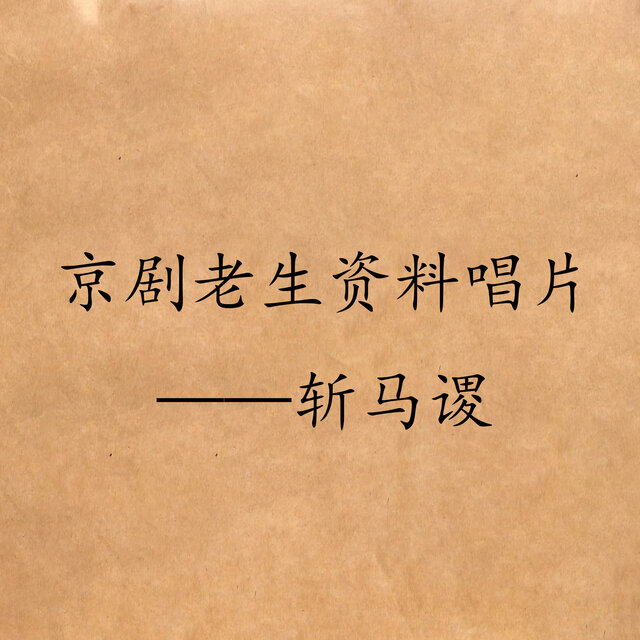 京剧老生资料唱片
——斩马谡